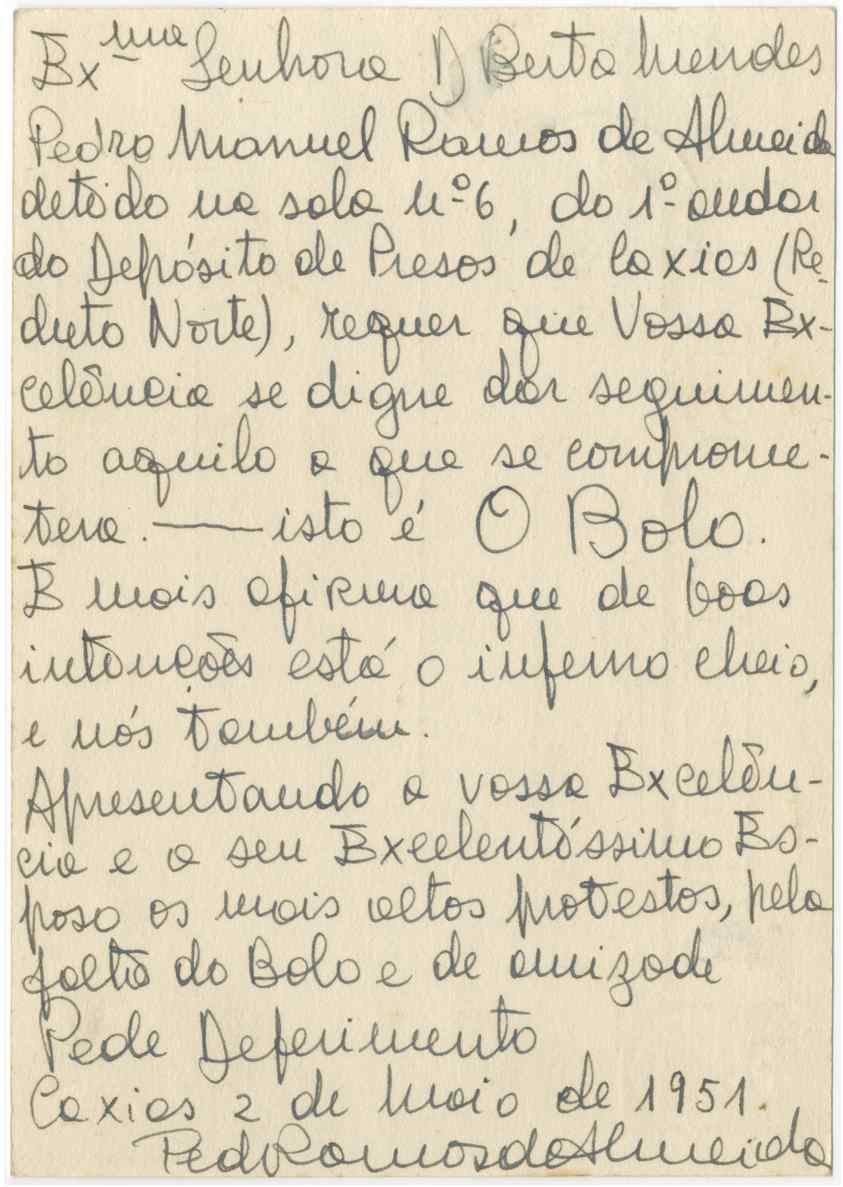 Exma Senhora D Berta Mendes
Pedro Manuel Ramos de Almeida
detido na sala nº6, do 1º andar
do Depósito de Presos de Caxias (Re-
duto Norte), requer que Vossa Ex-
celência se digne dar seguimen-
to aquilo a que se comprome-
tera. — isto é O Bolo.
E mais afirma que de boas
intenções está o inferno cheio,
e nós também.
Apresentando a vossa Excelên-
cia e a seu Excelentíssimo Es-
poso os mais altos protestos, pela
falta do Bolo e de amizade
Pede Deferimento
Caxias 2 de Maio de 1951.
PedRamosdeAlmeida